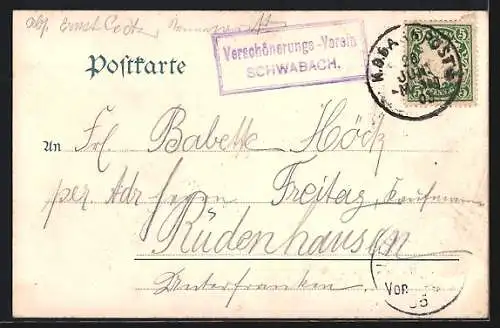 abs. Ernst
Verschönerungs-Verein
SCHWABACH.
Postkarte
K.B.BA
JUN
5 5
An Frl. Babette Höck
per. Adr. Herrn Freitag, Kaufmann
Rüdenhausen
Unterfranken.
VOR